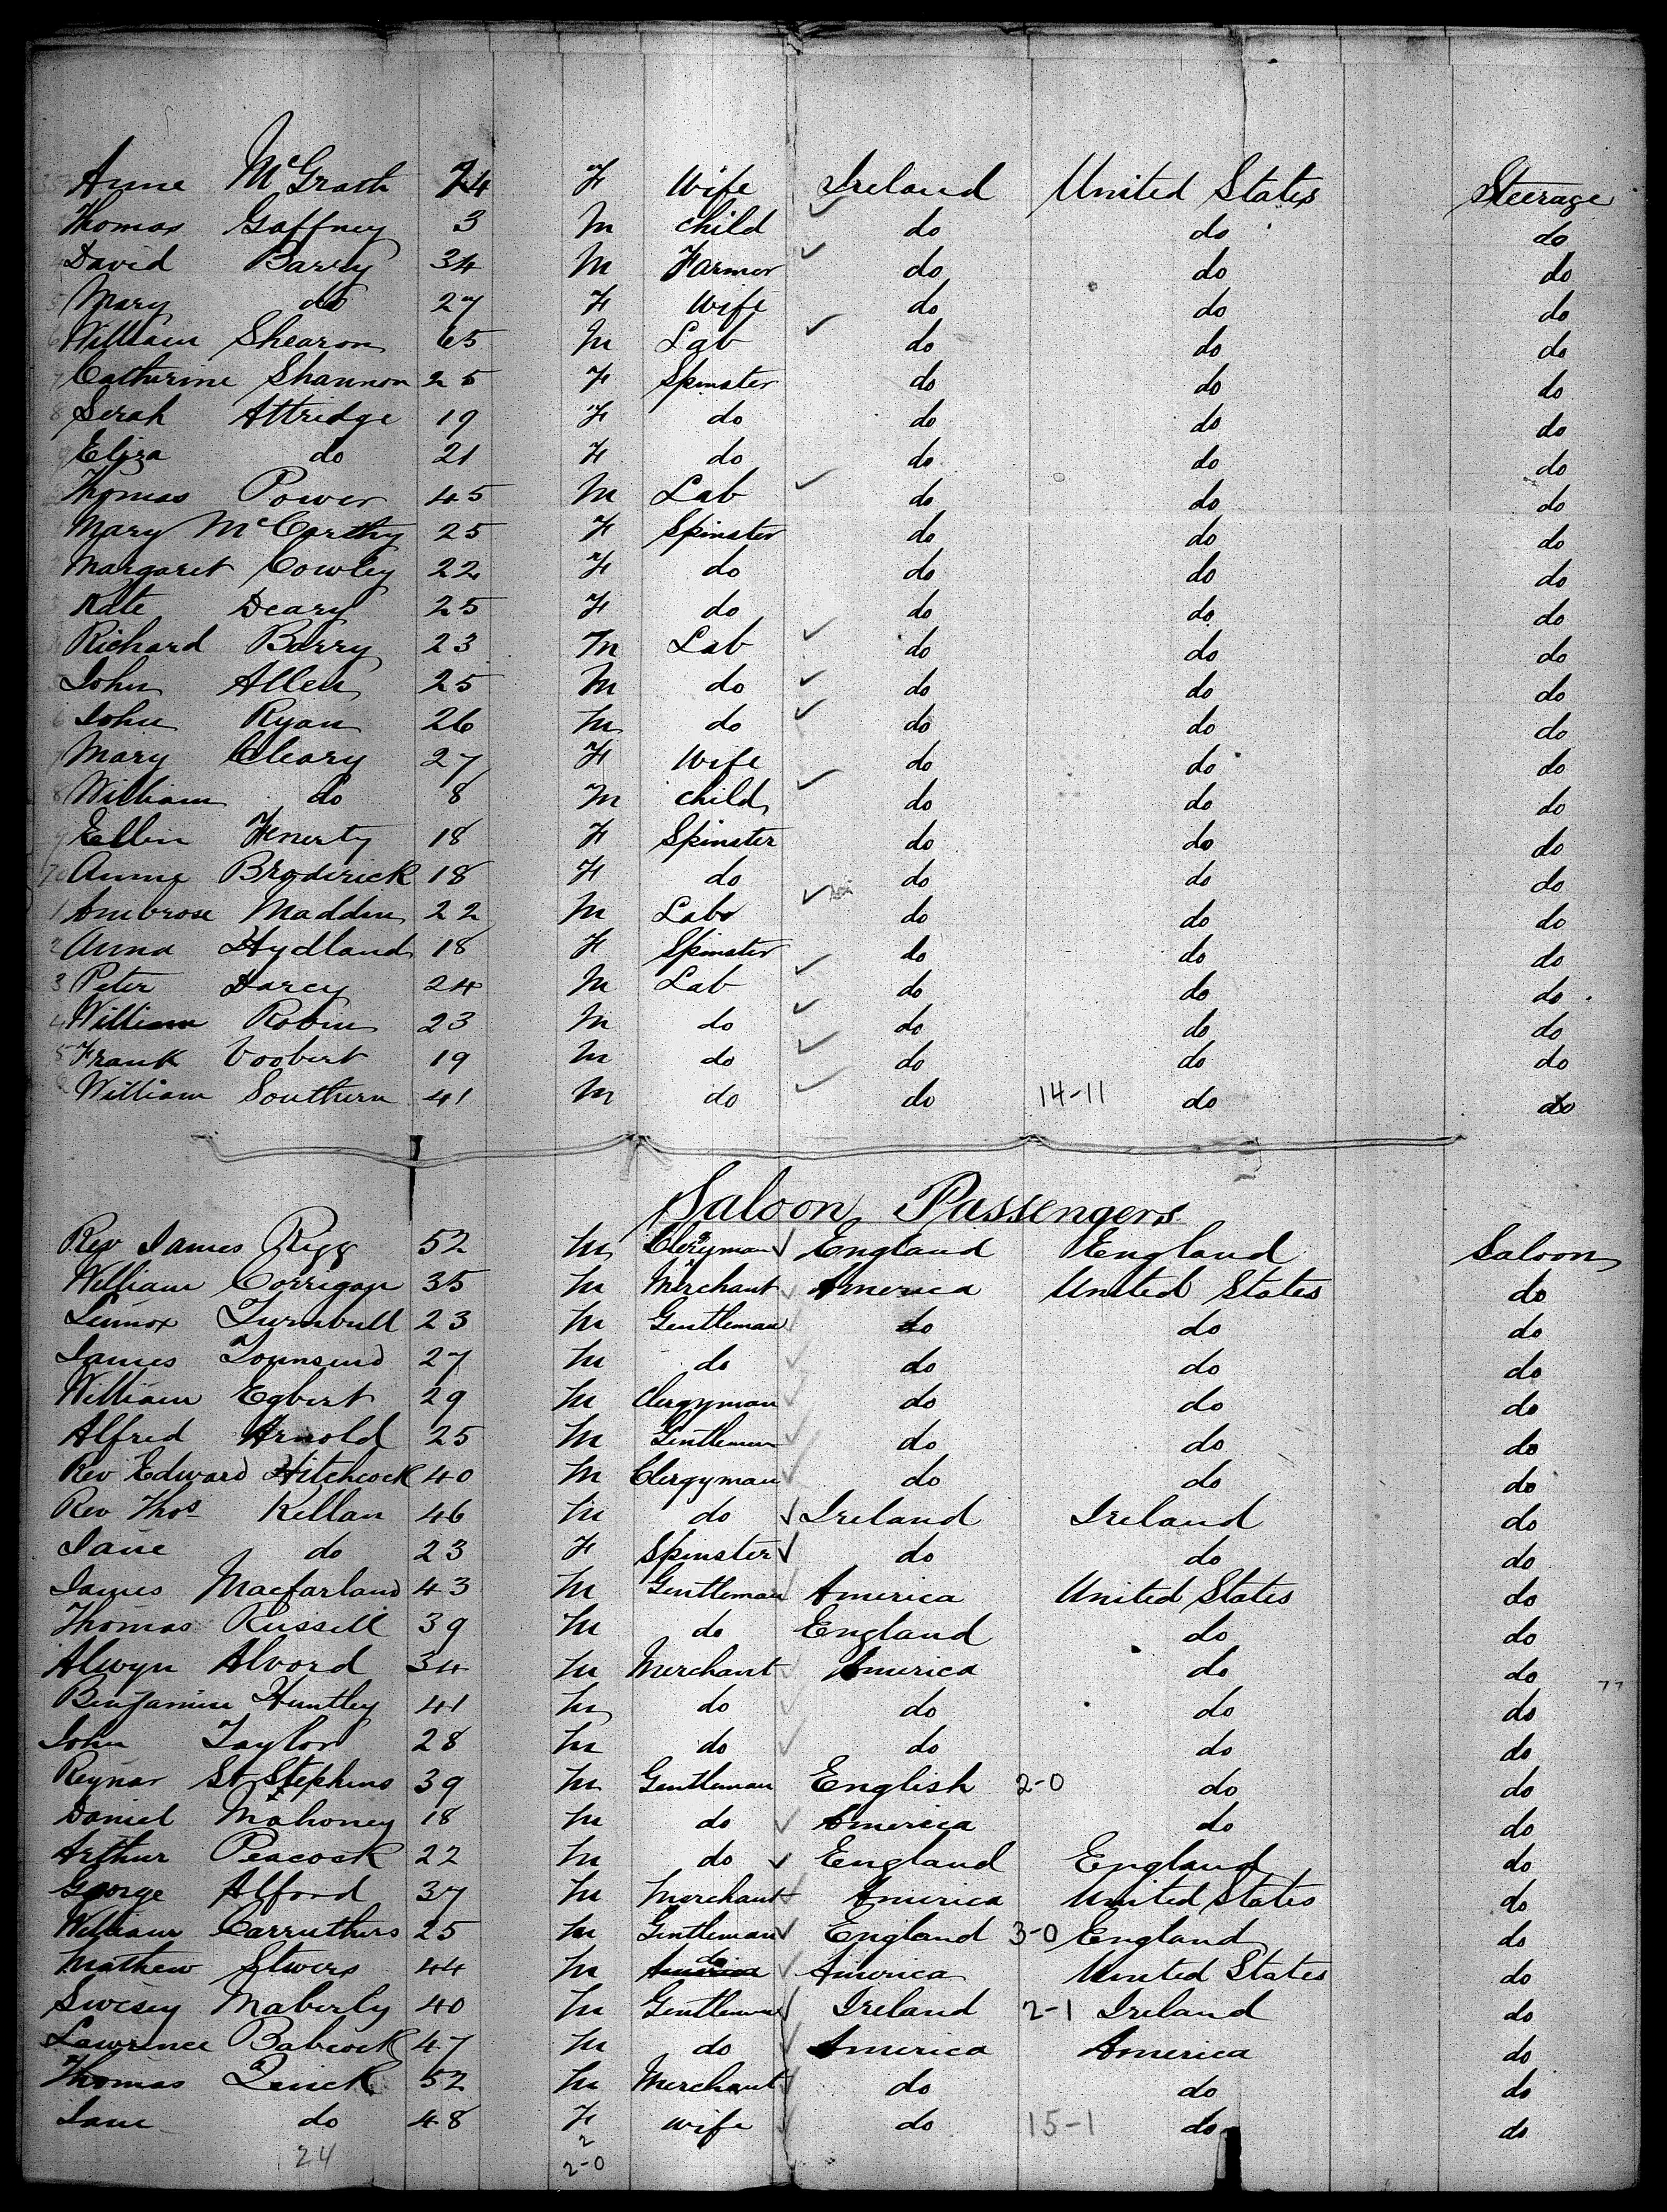 Anne McGrath 24 F Wife Ireland United States Steerage
Thomas Gaffney 3 M child do do do
David Barry 34 M Farmer do do do
5 Mary do 27 F Wife do do do
6 William Shearon 65 M Lab do do do
7 Catherine Shannon 25 F Spinster do do do
8 Serah Attridge 19 F do do do do
9 Eliza do 21 F do do do do
Thomas Power 45 M Lab do do do
Mary McCarthy 25 F Spinster do do do
Margaret Cowley 22 F do do do do
Kate Deary 25 F do do do do
Richard Barry 23 M Lab do do do
John Allen 25 M do do do do
6 John Ryan 26 M do do do do
7 Mary Cleary 27 F Wife do do do
8 William do 8 M child do do do
9 Ellin Fenerty 18 F Spinster do do do
70 Anne Broderick 18 F do do do do
1 Ambrose Madden 22 M Labr do do do
2 Anna Hydland 18 F Spinster do do do
3 Peter Darcy 24 M Lab do do do
4 William Robins 23 M do do do do
5 Frank Voobert 19 M do do do do
6 William Southern 41 M do do 14-11 do do
Saloon Passengers
Rev James Rigg 52 M Clergyman England England Saloon
William Corrigan 35 M Merchant America United States do
Lennox Turnbull 23 M Gentleman do do do
James Townsend 27 M do do do do
William Egbert 29 M Clergyman do do do
Alfred Arnold 25 M Gentleman do do do
Rev Edward Hitchcock 40 M Clergyman do do do
Rev Thos Kellan 46 M do Ireland Ireland do
Jane do 23 F Spinster do do do
James Macfarland 43 M Gentleman America United States do
Thomas Russell 39 M do England do do
Alwyn Alvord 34 M Merchant America do do
Benjamin Huntley 41 M do do do do
John Taylor 28 M do do do do
Reynar St Stephens 39 M Gentleman English 2-0 do do
Daniel Mahoney 18 M do America do do
Arthur Peacock 22 M do England England do
George Alford 37 M Merchant America United States do
William Carruthers 25 M Gentleman England 3-0 England do
Mathew Stivers 44 M do America United States do
Swesey Maberly 40 M Gentleman Ireland 2-1 Ireland do
Lawrence Babcock 47 M do America America do
Thomas Quick 52 M Merchant do do do
Jane do 48 F wife do 15-1 do do
24 2
2-0